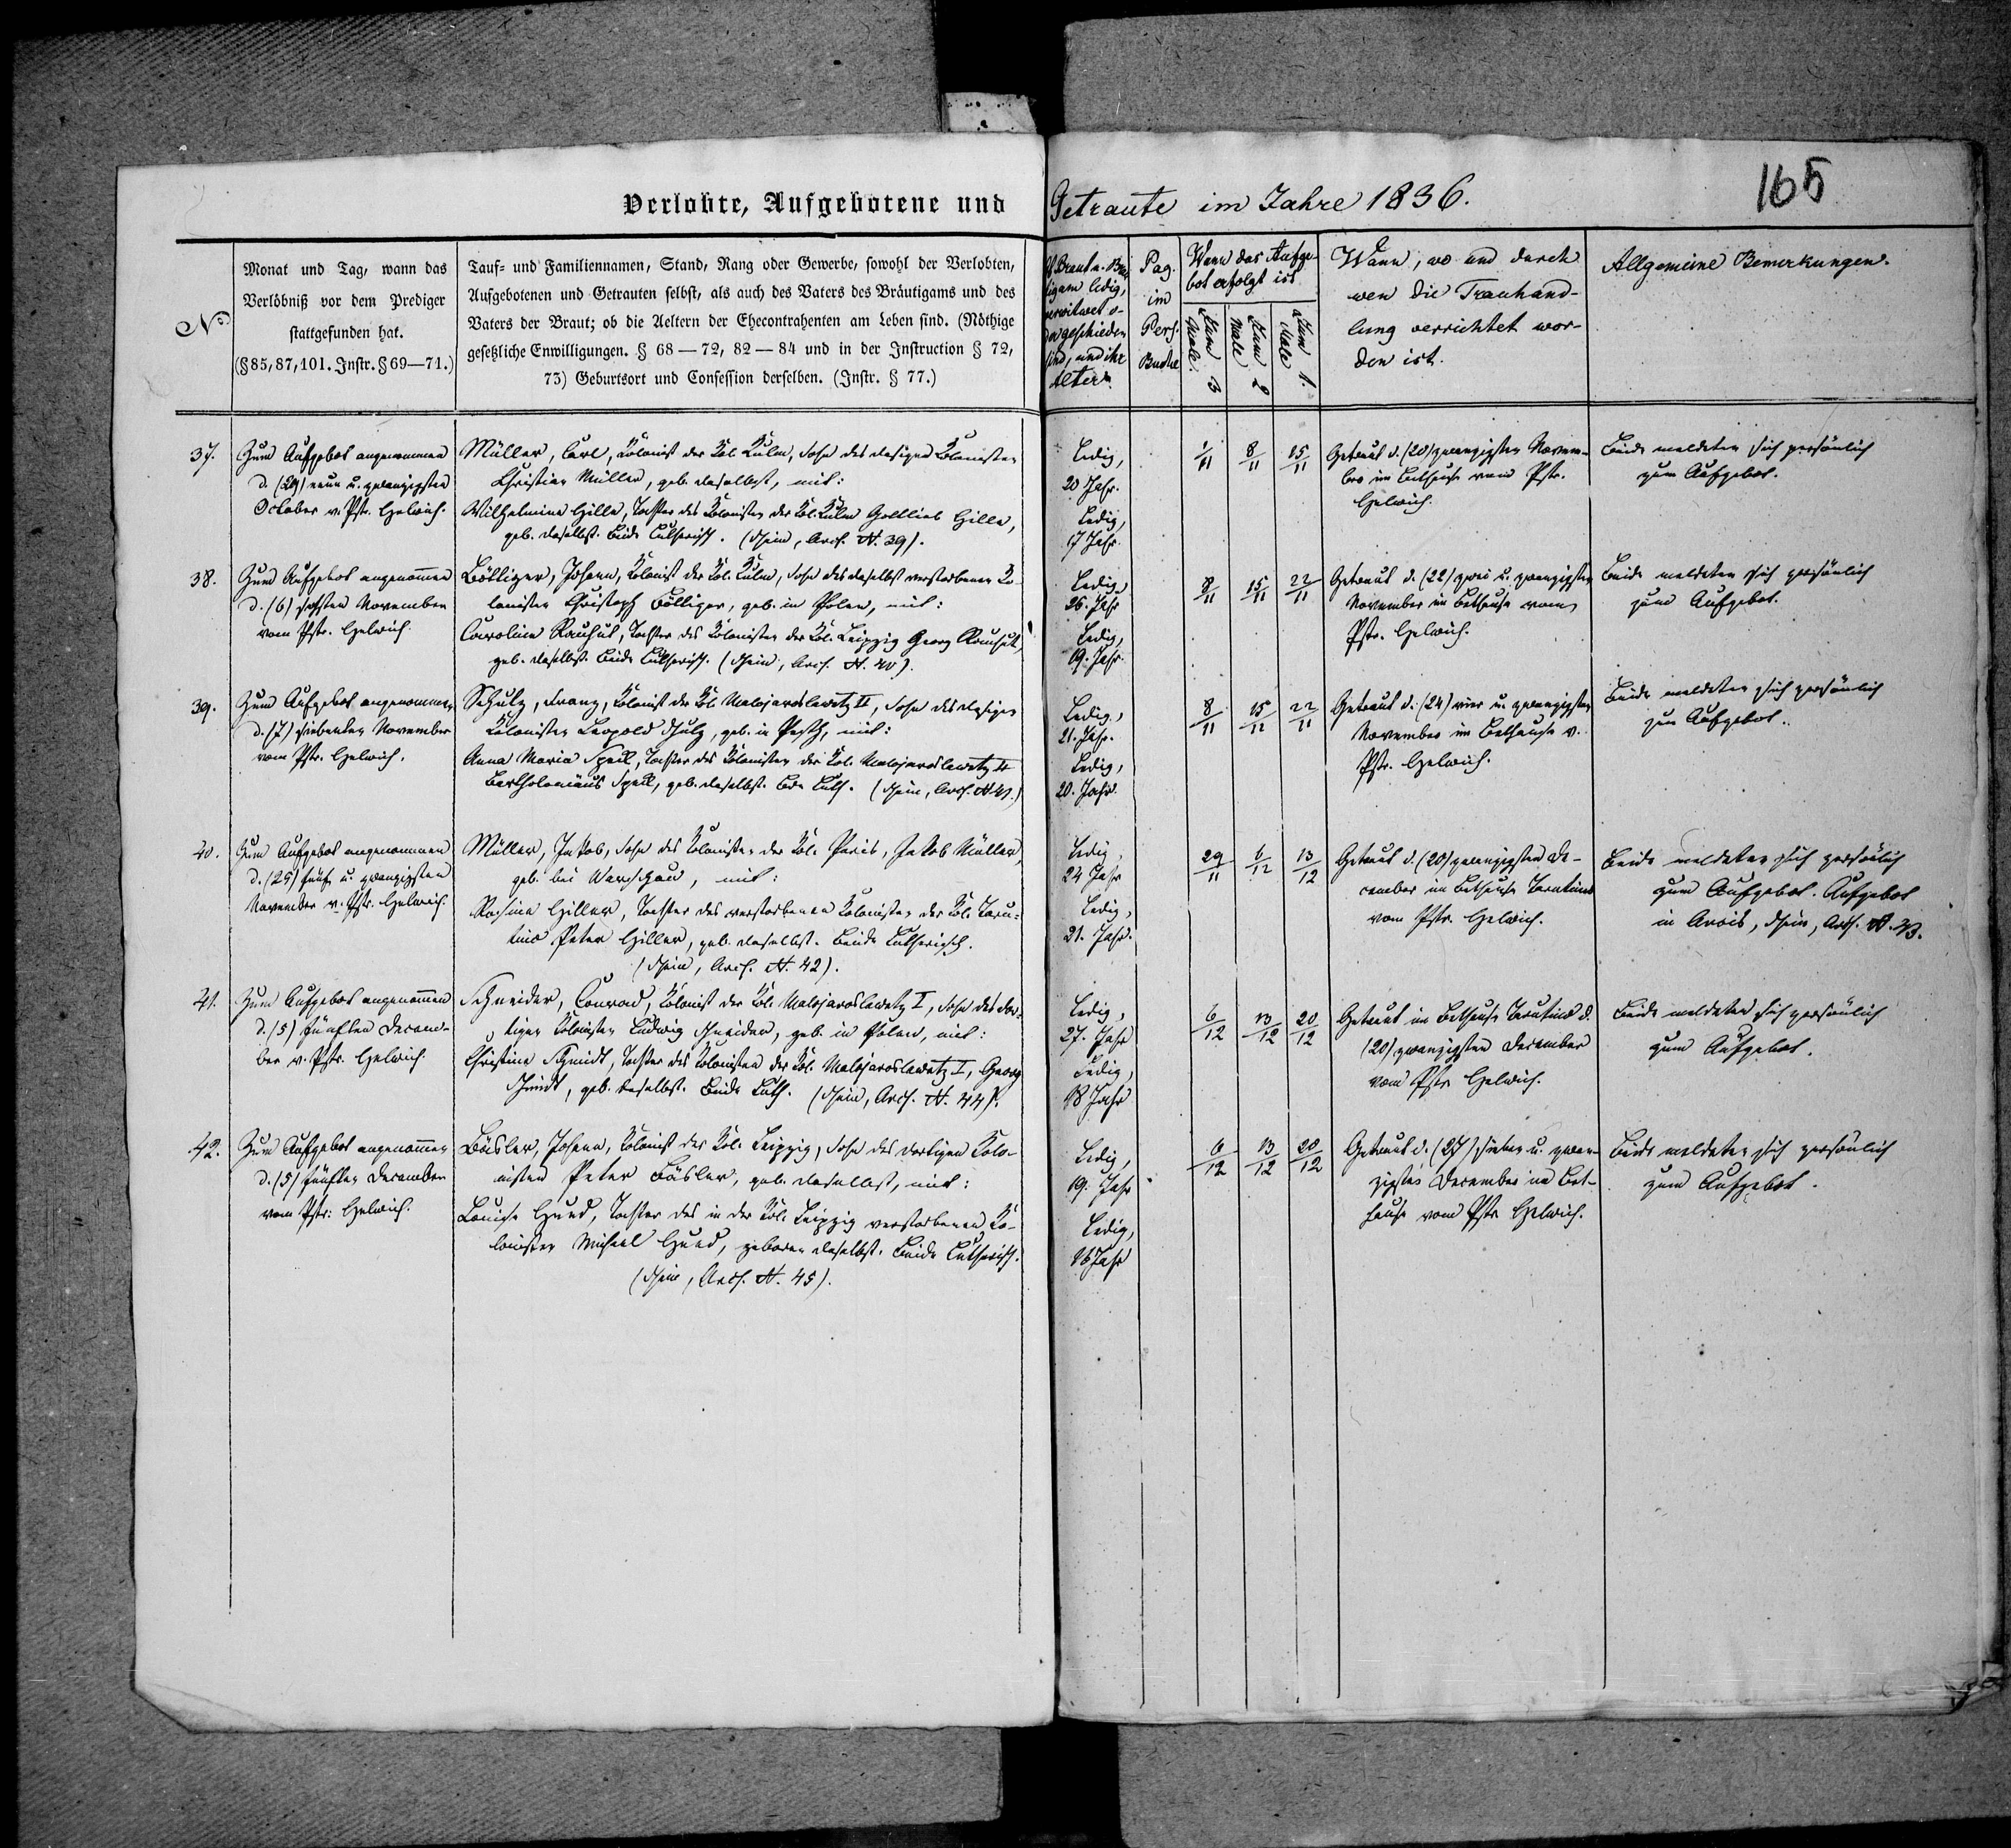 Verlobte, Aufgebotene und Getraute im Jahre 1836.
165
No.
Monat und Tag, wann das
Verlöbniß vor dem Prediger
stattgefunden hat.
(§85, 87, 101. Instr. §69—71.)
Tauf- und Familiennamen, Stand, Rang oder Gewerbe, sowohl der Verlobten,
Aufgebotenen und Getrauten selbst, als auch des Vaters des Bräutigams und des
Vaters der Braut; ob die Aeltern der Ehecontrahenten am Leben sind. (Nöthige
gesetzliche Enwilligungen. § 68—72, 82—84 und in der Instruction § 72,
73) Geburtsort und Confession derselben. (Instr. § 77.)
Braut u. Bräu
tigam ledig,
verwitwet o-
der geschieden
sind, und ihr
Alter.
Pag.
im
Pers.
Buche
Wann das Aufge-
bot erfolgt ist
Zum 3
Male.
Zum 2
Male
Zum 1.
Male
Wann, wo und durch
wen die Trauhand-
lung verrichtet wor-
den ist.
Allgemeine Bemerkungen.
37.
Zum Aufgebot angenommen
d. (29) neun u. zwanzigsten
October v. Pstr. Helwich.
Müller, Carl, Kolonist der Kol. Kulm, Sohn des dasigen Kolonisten
Christian Müller, geb. daselbst, mit:
Wilhelmine Hille, Tochter des Kolonisten der Kol. Kulm Gottlieb Hille,
geb. daselbst. Beide Lutherisch. (Schein, Arch. N. 39).
Ledig,
20 Jahr.
Ledig,
17 Jahr.
1/11 8/11 15/11
Getraut d. (20) zwanzigsten Novem-
ber im Bethause vom Pstr.
Helwich.
Beide meldeten sich persönlich
zum Aufgebot.
38.
Zum Aufgebot angenommen
d. (6) sechsten November
vom Pstr. Helwich.
Bölliger, Johann, Kolonist der Kol. Kulm, Sohn des daselbst verstorbenen Ko-
lonisten Christoph Bölliger, geb. in Polen, mit:
Caroline Rauhut, Tochter des Kolonisten der Kol. Leipzig Georg Rauhut,
geb. daselbst. Beide Lutherisch. (Schein, Arch. N. 40).
Ledig,
26. Jahr
Ledig,
19. Jahr.
8/11 15/11 22/11
Getraut d. (22) zwei u. zwanzigsten
November im Bethause vom
Pstr. Helwich.
Beide meldeten sich persönlich
zum Aufgebot.
39.
Zum Aufgebot angenommen
d. (7) siebenten November
vom Pstr. Helwich.
Schulz, Franz, Kolonist der Kol. Malojaroslawetz II, Sohn des dasigen
Kolonisten Leopold Schulz, geb. in Pesth, mit:
Anna Maria Speil, Tochter des Kolonisten der Kol. Malojaroslawetz II
Bartholomäus Speil, geb. daselbst. Bde Luth. (Schein, Arch. N 41.)
Ledig,
21. Jahr.
Ledig,
20. Jahr.
8/11 15/11 22/11
Getraut d. (24) vier u. zwanzigsten
November im Bethause v.
Pstr. Helwich.
Beide meldeten sich persönlich
zum Aufgebot.
40.
Zum Aufgebot angenommen
d. (25) fünf u. zwanzigsten
November v. Pstr. Helwich.
Müller, Jakob, Sohn des Kolonisten der Kol. Paris, Jakob Müller,
geb. bei Warschau, mit:
Rosine Hiller, Tochter des verstorbenen Kolonisten der Kol. Taru-
tino Peter Hiller, geb. daselbst. Beide Lutherisch.
(Schein, Arch. N. 42).
Ledig,
24 Jahr
Ledig,
21. Jahr.
29/11 6/12 13/12
Getraut d. (20) zwanzigsten De-
cember im Bethause Tarutino
vom Pstr. Helwich.
Beide meldeten sich persönlich
zum Aufgebot. Aufgebot
in Arcis, Schein, Arch. N. 43.
41.
Zum Aufgebot angenommen
d. (5) fünften Decem-
ber v. Pstr. Helwich.
Schneider, Conrad, Kolonist der Kol. Malojaroslawetz I, Sohn des dor-
tigen Kolonisten Ludwig Schneider, geb. in Polen, mit:
Christine Schmidt, Tochter des Kolonisten der Kol. Malojaroslawetz I, Georg
Schmidt, geb. daselbst. Beide Luth. (Schein, Arch. N. 44).
Ledig,
27. Jahr
Ledig,
18 Jahr
6/12 13/12 20/12
Getraut im Bethause Tarutino d.
(20) zwanzigsten December
vom Pstr Helwich.
Beide meldeten sich persönlich
zum Aufgebot.
42.
Zum Aufgebot angenommen
d. (5) fünften December
vom Pstr: Helwich.
Bäsler, Johann, Kolonist der Kol. Leipzig, Sohn des dortigen Kolo-
nisten Peter Bäsler, geb. daselbst, mit:
Louise Hund, Tochter des in der Kol. Leipzig verstorbenen Ko-
lonisten Michael Hund, geboren daselbst. Beide Lutherisch.
(Schein, Arch. N. 45).
Ledig,
19. Jahr
Ledig,
16 Jahr
6/12 13/12 20/12
Getraut d. (27) sieben u. zwan-
zigsten December im Bet-
hause vom Pstr Helwich.
Beide meldeten sich persönlich
zum Aufgebot.